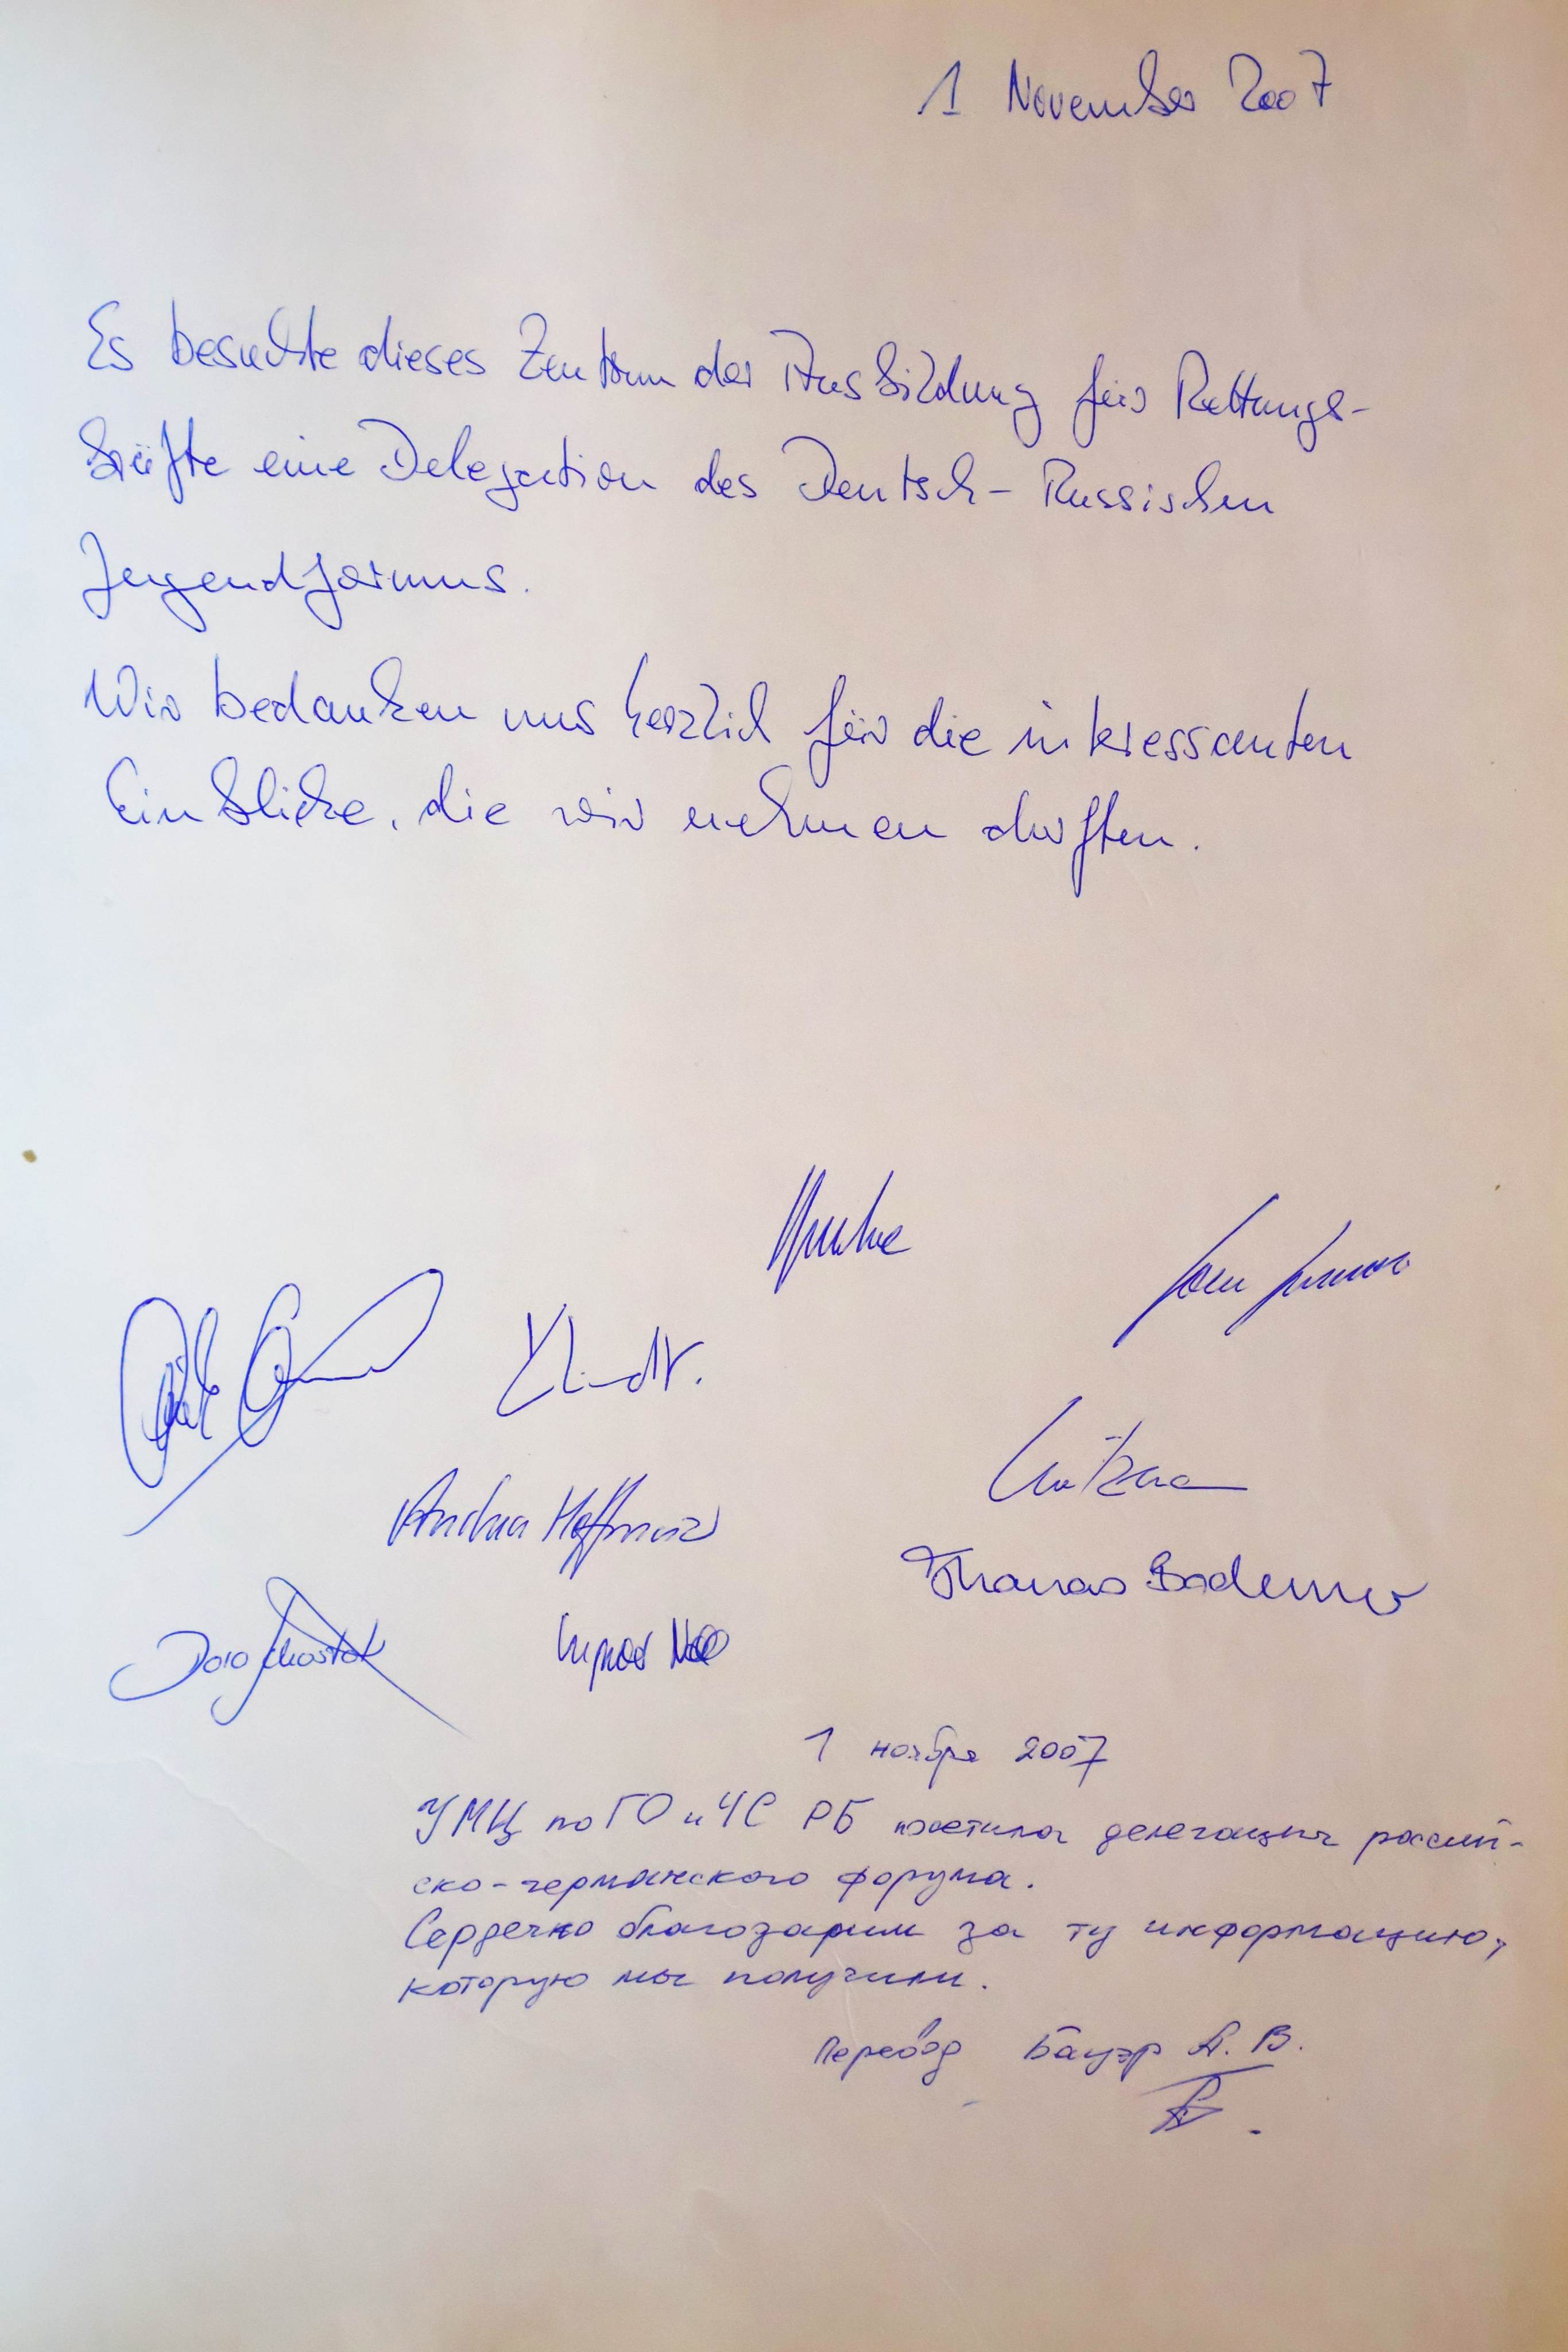 1 November 2007
Es besuchte dieses Zentrum der Ausbildung für Rettungs-
kräfte eine Delegation des Deutsch-Russischen
Jugendforums.
Wir bedanken uns herzlich für die interessanten
Einblicke, die wir nehmen durften.
Andrea Hoffmann
Thomas Bodemer
1 ноября 2007
УМЦ по ГО и ЧС РБ посетила делегация россий-
ско-германского форума.
Сердечно благодарим за ту информацию,
которую мы получили.
Перевод Бауэр А. В.